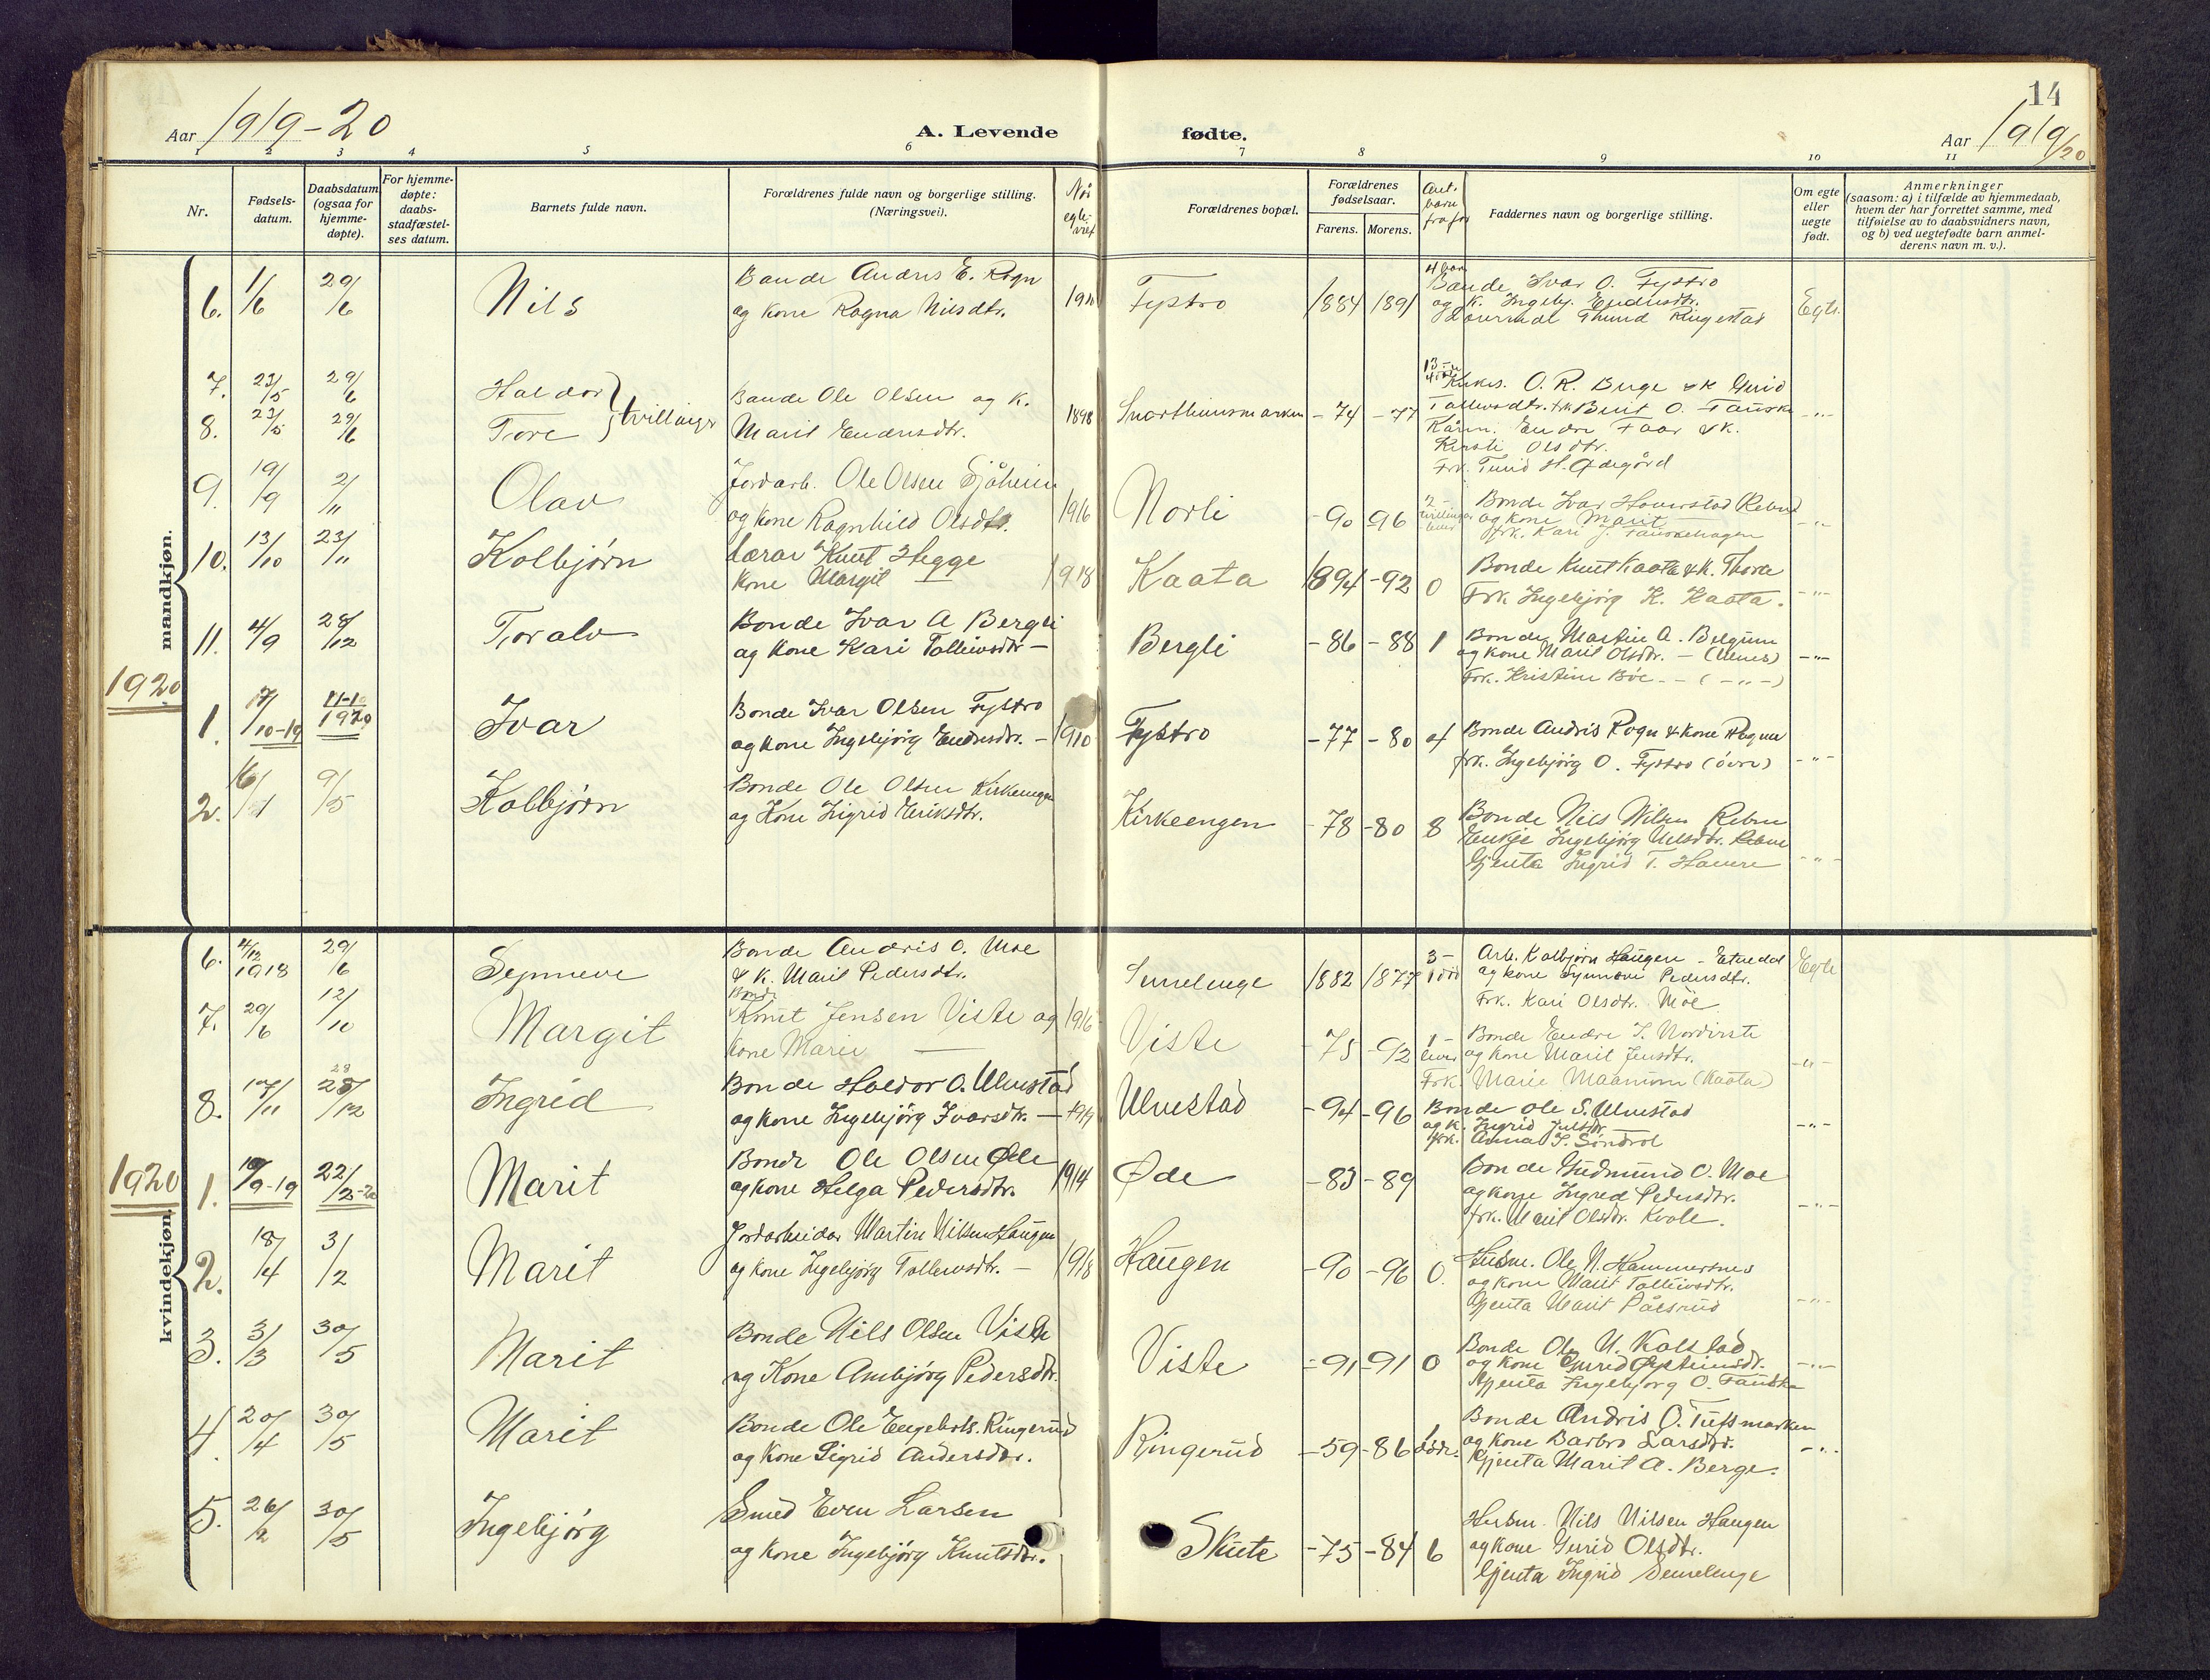 14
Aar 1919-20
A. Levende fødte.
Aar 1919/20
1 2 3 4 5 6 7 8 9 10 11
Nr.
Fødsels-
datum.
Daabsdatum
(ogsaa for
hjemme-
døpte).
For hjemme-
døpte:
daabs-
stadfæstel-
ses datum.
Barnets fulde navn.
Forældrenes fulde navn og borgerlige stilling.
(Næringsvei).
Forældrenes bopæl.
Forældrenes
fødselsaar.
Farens. Morens.
Ant.
barn
Faddernes navn og borgerlige stilling.
Om egte
eller
uegte
født.
Anmerkninger
(saasom: a) i tilfælde av hjemmedaab,
hvem der har forrettet samme, med
tilføielse av to daabsvidners navn,
og b) ved uegtefødte barn anmel-
derens navn m. v.).
mandkjøn.
6. 1/6 29/6 Nils
Bonde Andris E. Rogn
og kone Ragna Nilsdtr.
Fystro 1884 1891
Bonde Ivar O. Fystro
og k. Ingebj. Endresdtr.
Ringestad
Egte.
7. 23/5 29/6 Haldor
8. 23/5 29/6 Tore
tvillinger
Bonde Ole Olsen og k.
Marit Endresdtr.
1898
-74 -77
O. R. Berge & k. Gurid
Tollevsdtr. Berit O.
Endre & k.
Kirsti Olsdtr.
-"-
9. 19/9 2/11 Olav
Jordarb. Ole Olsen Sjåheim
og kone Ragnhild Olsdtr.
1916
Norli -90 -96
Bonde Ivar Haverstad
og kone Marit
frk. Kari J.
-"-
10. 13/10 23/11 Kolbjørn
Lærar Knut Hegge
kone Margit —
1918
Kaata 1894 -92 0
Bonde Knut Kaata & k. Thora
Frk Ingebjørg K. Kaata.
-"-
11. 4/9 28/12 Toralv
Bonde Ivar A Bergli
og kone Kari Tollevsdtr —
Bergli -86 -88 1
Bonde Martin A. Belgum
og kone Marit Olsdtr. - (Ulnes)
Frk. Kristine Bøe - - ( - " - )
-"-
1920
1. 17/10-19 11-1 1920 Ivar
Bonde Ivar Olsen Fystro
og kone Ingebjørg Endresdtr. -
1910
Fystro -77 -80 4
Bonde Andris Rogn & kone Ragna
frk. Ingebjørg O. Fystro (øvre)
-"-
2. 16/1 9/5 Kolbjørn
Bonde Ole Olsen Kirkeengen
og Kone Ingrid Eriksdtr.
Kirkeengen -78 -80 8
Bonde Nils Nilsen Rebne
Enkje Ingebjørg Nilsdtr. Rebne
Gjenta Ingrid T.
-"-
kvindekjøn.
6. 4/12 1918 29/6 Synneve
Bonde Andris O. Moe
& k. Marit Pedersdtr.
Semelenge 1882 1877
Arb. Kolbjørn Haugen - Etnedal
og kone Synnøve Pedersdtr.
Frk. Kari Olsdtr. Moe
Egte
7. 29/6 12/10 Margit
Bonde
Knut Jensen Viste og
kone Marie —
1916
Viste -75 -92
1 -
lever
Bonde Endre
og kone Marit Jensdtr.
Frk. Marie Maanum (Kaata)
-"-
8. 17/11 28/12 Ingrid
Bonde Haldor O. Ulnestad
og kone Ingebjørg Ivarsdtr. —
1919
Ulvestad -94 -96
Bonde Ole S. Ulvestad
og k. Ingrid
frk. Anna J. Søndrol
-"-
1920
1. 10/9-19 22/2-20 Marit
Bonde Ole Olsen Øde
og kone Helga Pedersdtr.
1914
Øde -83 -89
Bonde Gudmund O. Moe
og kone Ingrid Pedersdtr.
frk. Marit Olsdtr. Kvale.
-"-
2. 18/4 3/2 Marit
Jordarbeider Martin Nilsen Haugen
og kone Ingebjørg Tollevsdtr. -
1918
Haugen -90 -96 0.
Husm. Ole N. Hammersnes
og kone Marit Tollevsdtr.
Gjenta Marit Pålsrud
-"-
3. 3/3 30/5 Marit
Bonde Nils Olsen Viste
og Kone Ambjørg Pedersdtr.
Viste -91 -91 0
Bonde Ole N. Kolstad
og kone Gurid Øysteinsdtr.
Gjenta Ingebjørg O.
-"-
4. 20/4 30/5 Marit
Bonde Ole Engebrets. Ringerud
og Kone Sigrid Andersdtr.
Ringerud -59 -86
Bonde Andris O. Tuftsmarken
og kone Barbro Larsdtr.
Gjenta Marit A. Berge.
-"-
5. 26/2 30/5 Ingebjørg
Smed Even Larsen
og Kone Ingebjørg Knutsdtr.
Skute -75 -84 6
Husm. Nils Nilsen Haugen
og kone Gurid Olsdtr.
Gjenta Ingrid Semelenge